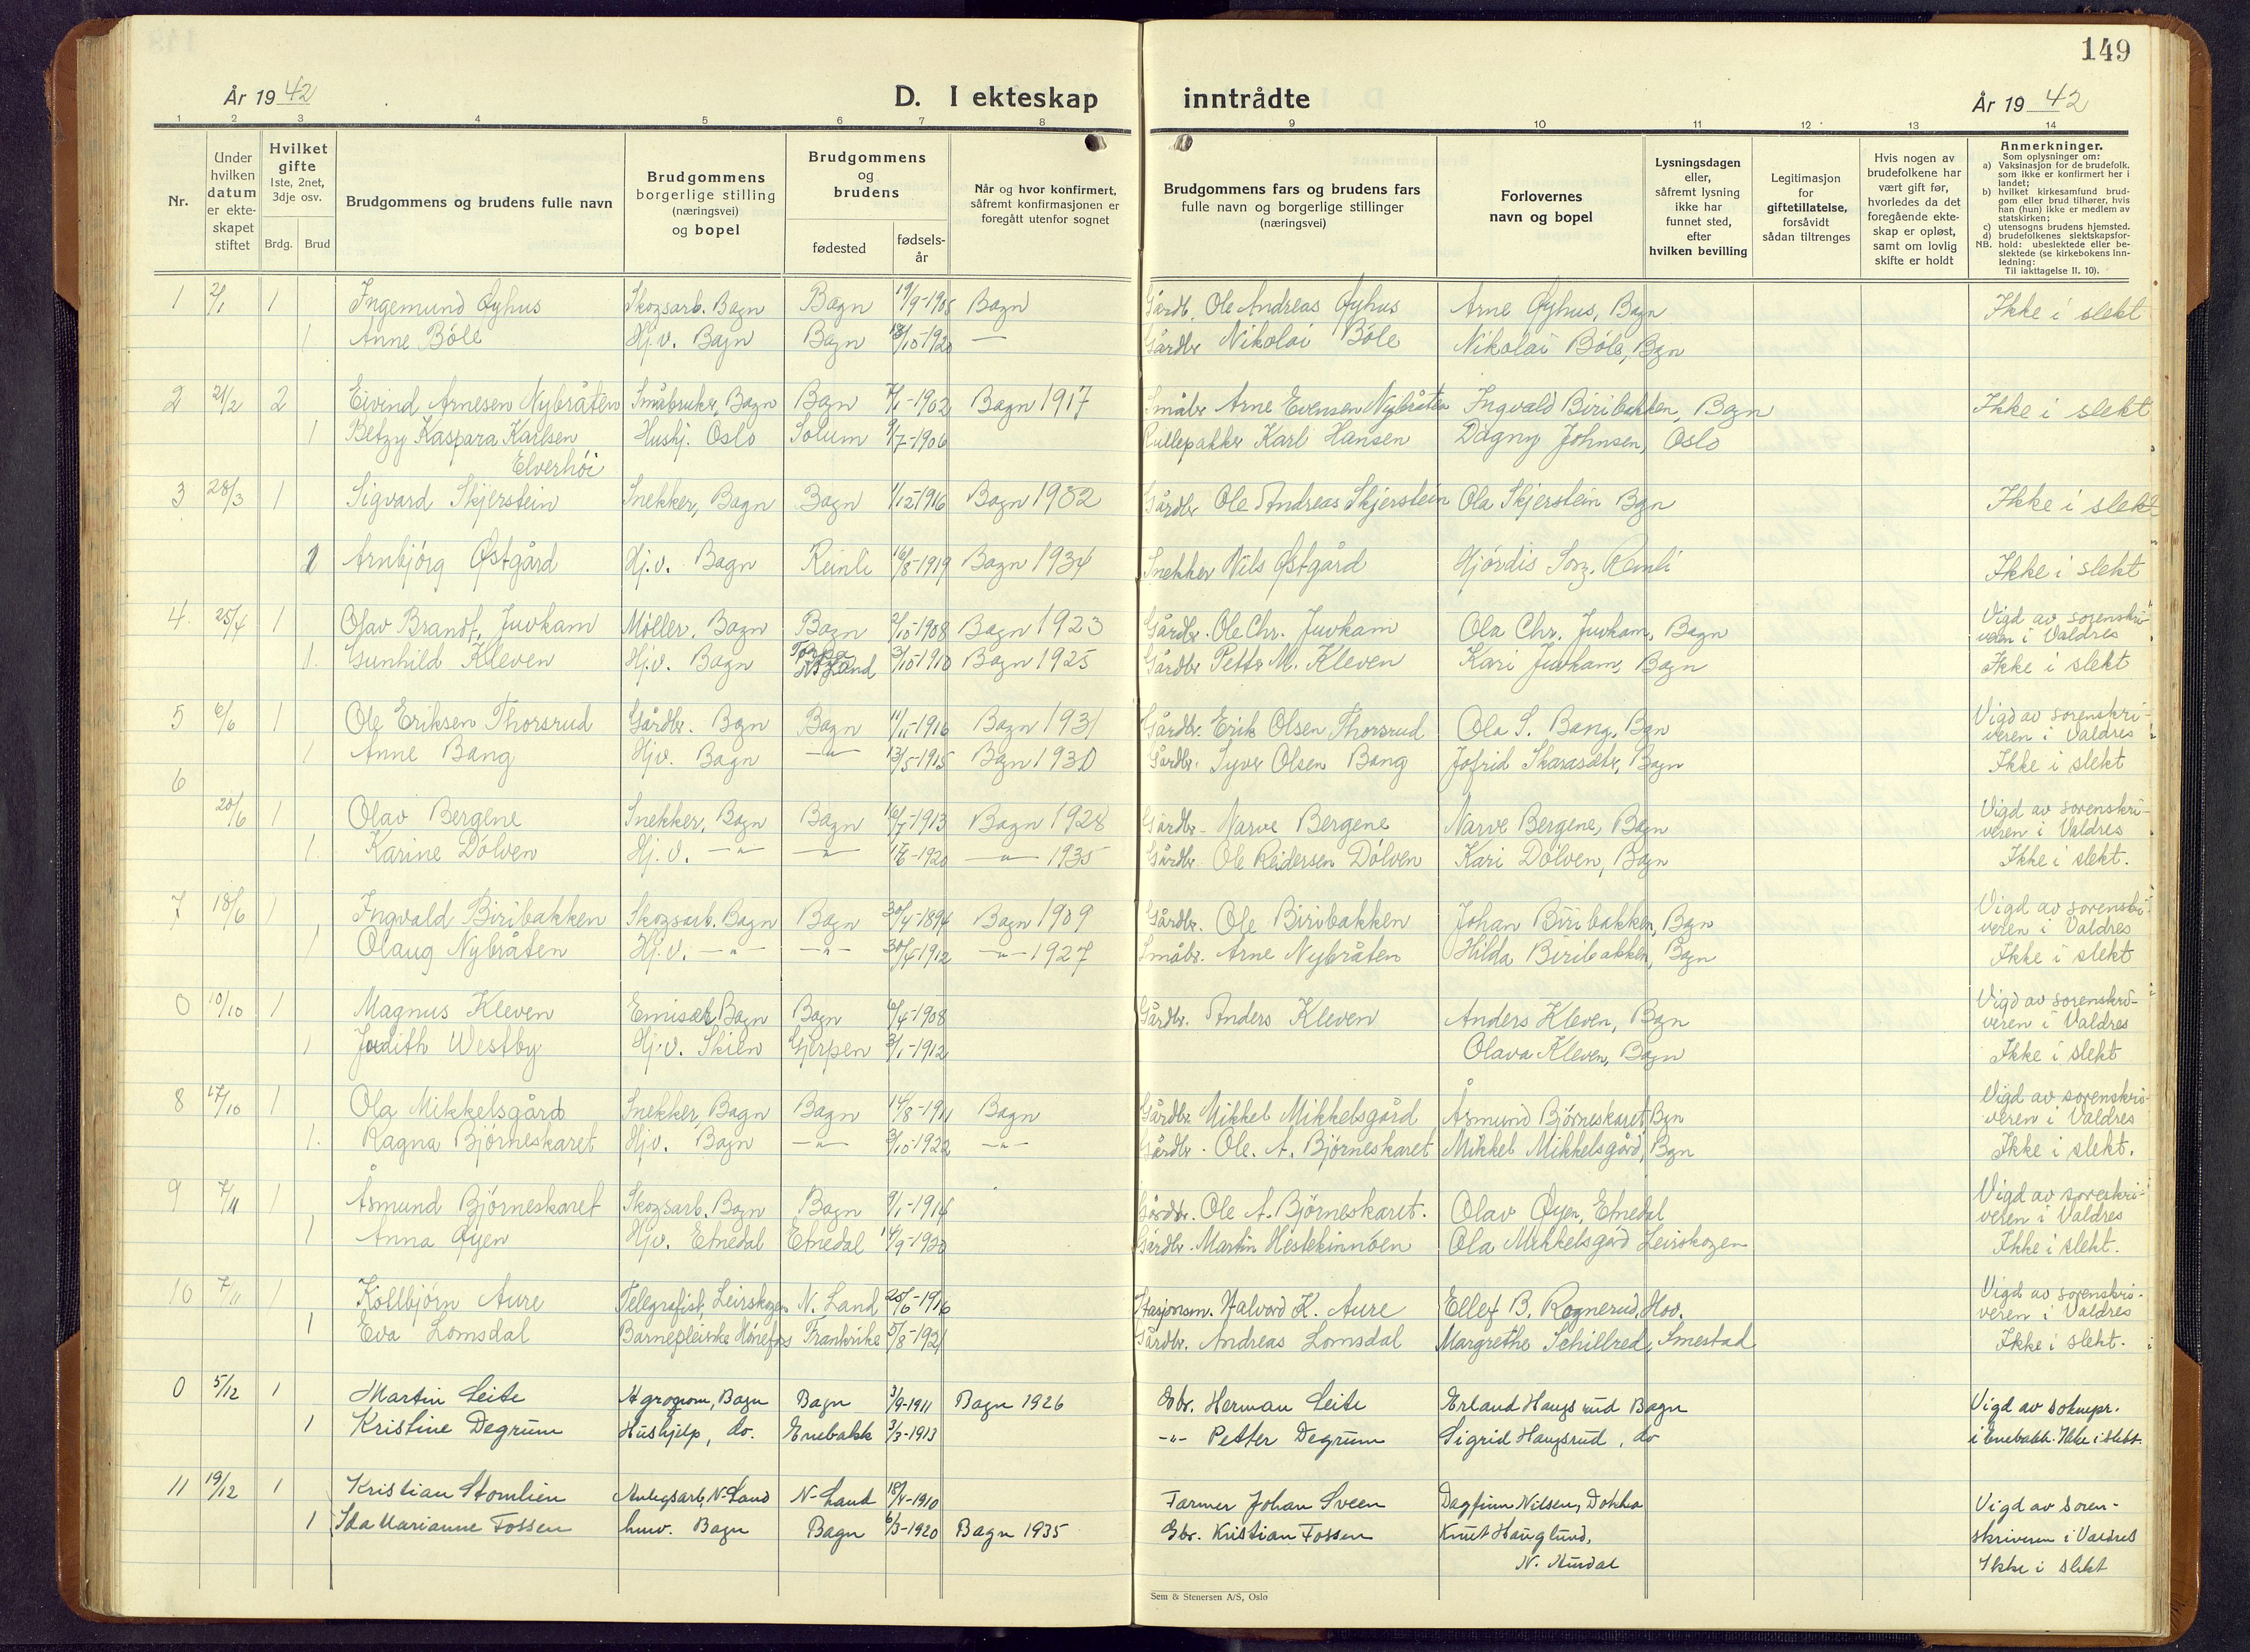 149
År 1942
D. I ekteskap inntrådte
År 1942
1 2 3 4 5 6 7 8 9 10 11 12 13 14
Nr.
Under hvilken datum er ekteskapet stiftet
Hvilket gifte 1ste, 2net, 3dje osv.
Brdg. Brud
Brudgommens og brudens fulle navn
Brudgommens borgerlige stilling (næringsvei) og bopel
Brudgommens og brudens
fødested
fødsels-år
Når og hvor konfirmert, såfremt konfirmasjonen er foregått utenfor sognet
Brudgommens fars og brudens fars fulle navn og borgerlige stillinger (næringsvei)
Forlovernes navn og bopel
Lysningsdagen eller, såfremt lysning ikke har funnet sted, efter hvilken bevilling
Legitimasjon for giftetillatelse, forsåvidt sådan tiltrenges
Hvis nogen av brudefolkene har vært gift før, hvorledes da det foregående ekteskap er opløst, samt om lovlig skifte er holdt
Anmerkninger.
Som oplysninger om:
a) Vaksinasjon for de brudefolk, som ikke er konfirmert her i landet;
b) hvilket kirkesamfund brudgom eller brud tilhører, hvis han (hun) ikke er medlem av statskirken;
c) utensogns brudens hjemsted.
d) brudefolkenes slektskapsforhold: ubeslektede eller beslektede (se kirkebokens innledning:
NB. Til iakttagelse II. 10).
1 2/1 1 Ingemund Øyhus Skogsarb. Bagn Bagn 19/9-1905 Bagn Gårdb. Ole Andreas Øyhus Arne Øyhus, Bagn Ikke i slekt
1 Anne Bøle Hj.v. Bagn Bagn 18/10-1920 — Gårdbr Nikolai Bøle Nikolai Bøle, Bgn
2 21/2 2 Eivind Arnesen Nybråten Småbruker, Bagn Bagn 7/1-1902 Bagn 1917 Småbr Arne Evensen Nybråten Ingvald Biribakken, Bagn Ikke i slekt
1 Betzy Kaspara Karlsen Hushj. Oslo Solum 9/7-1906 Rullepakker Karl Hansen Dagny Johnsen, Oslo
Elverhøi
3 28/3 1 Sigvard Skjerstein Snekker, Bagn Bagn 1/12-1916 Bagn 1932 Gårdbr Ole Andreas Skjerstein Ola Skjerstein Bgn Ikke i slekt
1 Arnbjørg Østgård Hj.v. Bagn Reinli 16/8-1919 Bagn 1934 Snekker Nils Østgård Hjørdis Sorg. Reinli Ikke i slekt
4. 25/4 1 Olav Brandt, Juvkam Møller. Bagn Bagn 2/10-1908 Bagn 1923 Gårdbr. Ole Chr. Juvkam Ola Chr. Juvkam, Bagn Vigd av sorenskri-
veren i Valdres
1. Gunhild Kleven Hj.v. Bagn Torpa 3/10-1910 Bagn 1925 Gårdbr Petter M. Kleven Kari Juvkam, Bagn Ikke i slekt
5 6/6 1 Ole Eriksen Thorsrud Gårdbr. Bgn Bagn 11/11-1916 Bagn 1931 Gårdbr. Erik Olsen Thorsrud Ola S. Bang, Bgn Vigd av sorenskri-
veren i Valdres
1 Anne Bang Hjv. Bagn —"— 13/5-1915 Bagn 1930 Gårdbr. Syver Olsen Bang Jofrid Skarasæter, Bagn Ikke i slekt
6 20/6 1 Olav Bergene Snekker, Bagn Bagn 16/7-1913 Bagn 1928 Gårdbr - Narve Bergene Narve Bergene, Bagn Vigd av sorenskri-
veren i Valdres
1. Karine Dølven Hj.v. —"— —"— 1/6-1920 —"— 1935 Gårdbr Ole Reidersen Dølven Kari Dølven, Bagn Ikke i slekt.
7 18/6 1 Ingvald Biribakken Skogsarb. Bagn Bagn 30/4-1894 Bagn 1909 Gårdbr. Ole Biribakken Johan Biribakken, Bgn Vigd av sorenskri-
veren i Valdres
1 Olaug Nybråten Hj.v. —"— —"— 30/4-1912 —"— 1927 Småbr. Arne Nybråten Hilda Biribakken, Bgn Ikke i slekt
0 10/10 1 Magnus Kleven Emisær, Bagn Bagn 6/4-1908 Gårdbr. Anders Kleven Anders Kleven, Bgn Vigd av sorenskri-
veren i Valdres
1 Judith Westby Hj.v. Skien Gjerpen 3/1-1912 Olava Kleven, Bagn Ikke i slekt
8 17/10 1 Ola Mikkelsgård Snekker, Bagn Bagn 14/8-1911 Bagn Gårdbr. Mikkel Mikkelsgård Åsmund Bjørneskaret, Bgn Vigd av sorenskri-
veren i Valdres
1. Ragna Bjørneskaret Hjv. Bagn —"— 3/10-1922 —"— Gårdbr. Ole. A. Bjørneskaret Mikkel Mikkelsgård, Bgn Ikke i slekt.
9 7/11 1 Åsmund Bjørneskaret Skogsarb. Bagn Bagn 9/1-1914 Gårdbr. Ole A. Bjørneskaret. Olav Øyen, Etnedal Vigd av soreskri-
veren i Valdres
1 Anna Øyen Hjv. Etnedal Etnedal 14/9-1920 Gårdbr. Martin Hestekinnøen Ola Mikkelsgård Leirskogen Ikke i slekt.
10 7/11 1 Kollbjørn Aure Telegrafist Leirskogen N. Land 25/6-1916 Stasjonsm. Halvord K. Aure Ellef B. Rognerud, Hov. Vigd av sorenskri-
veren i Valdres
1 Eva Lomsdal Barnepleierske Hønefoss Frankrike 5/8-1921 Gårdbr. Andreas Lomsdal Margrethe Schillred, Smestad Ikke i slekt.
0 5/12 1 Martin Leite Agronom, Bagn Bagn 3/9-1911 Bagn 1926 Gbr. Herman Leite Erland Haugsrud Bagn Vigd av soknepr.
1 Kristine Degrum Hushjelp, do. Enebakk 3/3-1913 -"- Petter Degrum Sigrid Haugsrud, do i Enebakk. Ikke i slekt.
11 19/12 1 Kristian Stomlien Anlegsarb, N-Land N-Land 18/4-1910 Farmer Johan Sveen Dagfinn Nilsen, Dokka Vigd av soren-
1 Ida Marianne Fossen husv. Bagn Bagn 6/3-1920 Bagn 1935 Gbr. Kristian Fossen Knut Hauglund, skriveren i Valdres
N. Aurdal Ikke i slekt
Sem & Stenersen A/S, Oslo